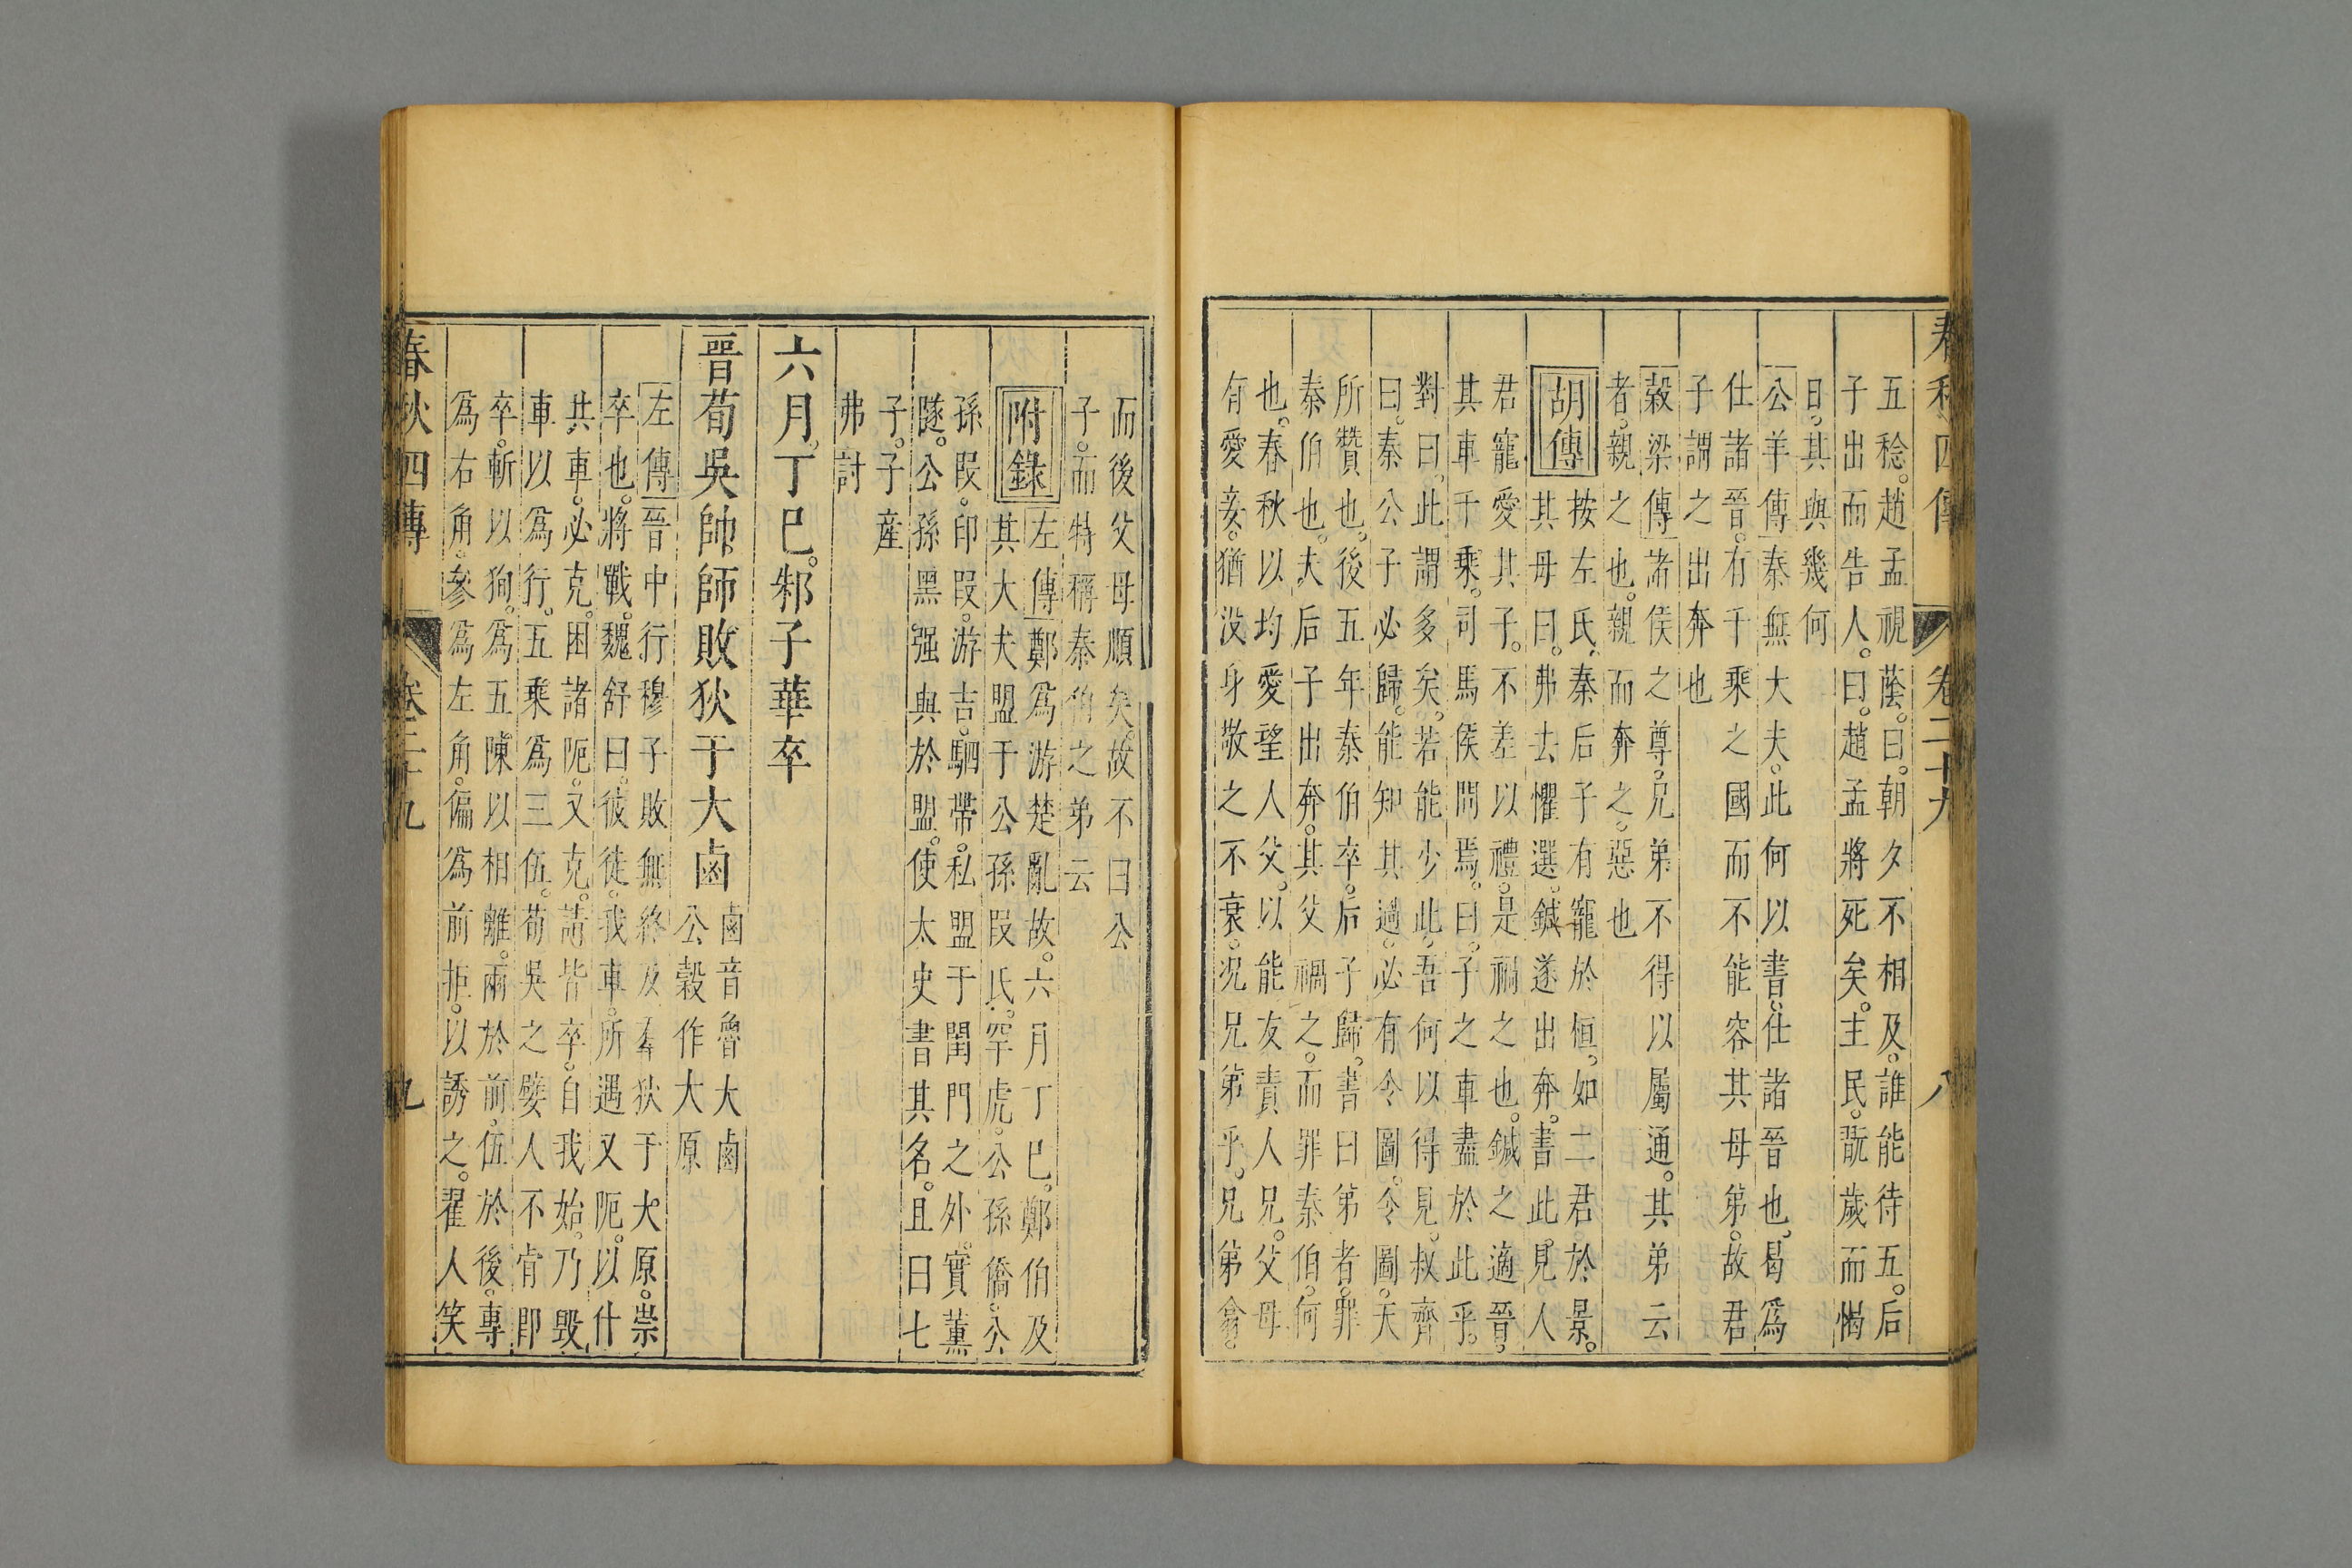 春秋四傳 卷二十九 八
五稔。趙孟視蔭。曰。朝夕不相及。誰能待五。后
子出而告人。曰。趙孟將死矣。主民。翫歲而愒
日。其與幾何
公羊傳 秦無大夫。此何以書。仕諸晉也。曷爲
仕諸晉。有千乘之國而不能容其母弟。故君
子謂之出奔也
穀梁傳 諸侯之尊。兄弟不得以屬通。其弟云
者。親之也。親而奔之。惡也
胡傳 按左氏。秦后子有寵於桓。如二君於景。
其母曰。弗去懼選。鍼遂出奔。書此。見人
君寵愛其子。不差以禮。是禍之也。鍼之適晉。
其車千乘。司馬侯問焉。曰。子之車盡於此乎。
對曰。此謂多矣。若能少此。吾何以得見。叔齊
曰。秦公子必歸。能知其過。必有令圖。令圖。天
所贊也。後五年秦伯卒。后子歸。書曰弟者。罪
秦伯也。夫后子出奔。其父禍之。而罪秦伯。何
也。春秋以均愛望人父。以能友責人兄。父母
有愛妾。猶没身敬之不衰。况兄弟乎。兄弟翕。
而後父母順矣。故不曰公
子。而特稱秦伯之弟云
附錄 左傳 鄭爲游楚亂故。六月丁巳。鄭伯及
其大夫盟于公孫叚氏。罕虎。公孫僑。公
孫叚。印叚。游吉。駟帶。私盟于閨門之外。實薰
隧。公孫黑强與於盟。使太史書其名。且曰七
子。子産
弗討
六月。丁巳。邾子華卒
晉荀吳帥師敗狄于大鹵 鹵音魯大鹵
公穀作大原
左傳 晉中行穆子敗無終及羣狄于大原。崇
卒也。將戰。魏舒曰。彼徒。我車。所遇又阨。以什
共車。必克。困諸阨。又克。請皆卒。自我始。乃毁
車以爲行。五乘爲三伍。荀吳之嬖人不肯即
卒。斬以狥。爲五陳以相離。兩於前。伍於後。專
爲右角。參爲左角。偏爲前拒。以誘之。翟人笑
春秋四傳 卷二十九 九